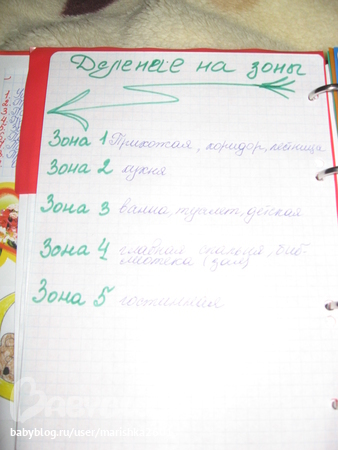 Деление на зоны
Зона 1 Прихожая, коридор, лестница
Зона 2 кухня
Зона 3 ванна, туалет, детская
Зона 4 главная спальня, биб-
лиотека (зал)
Зона 5 гостинная
babyblog.ru/user/